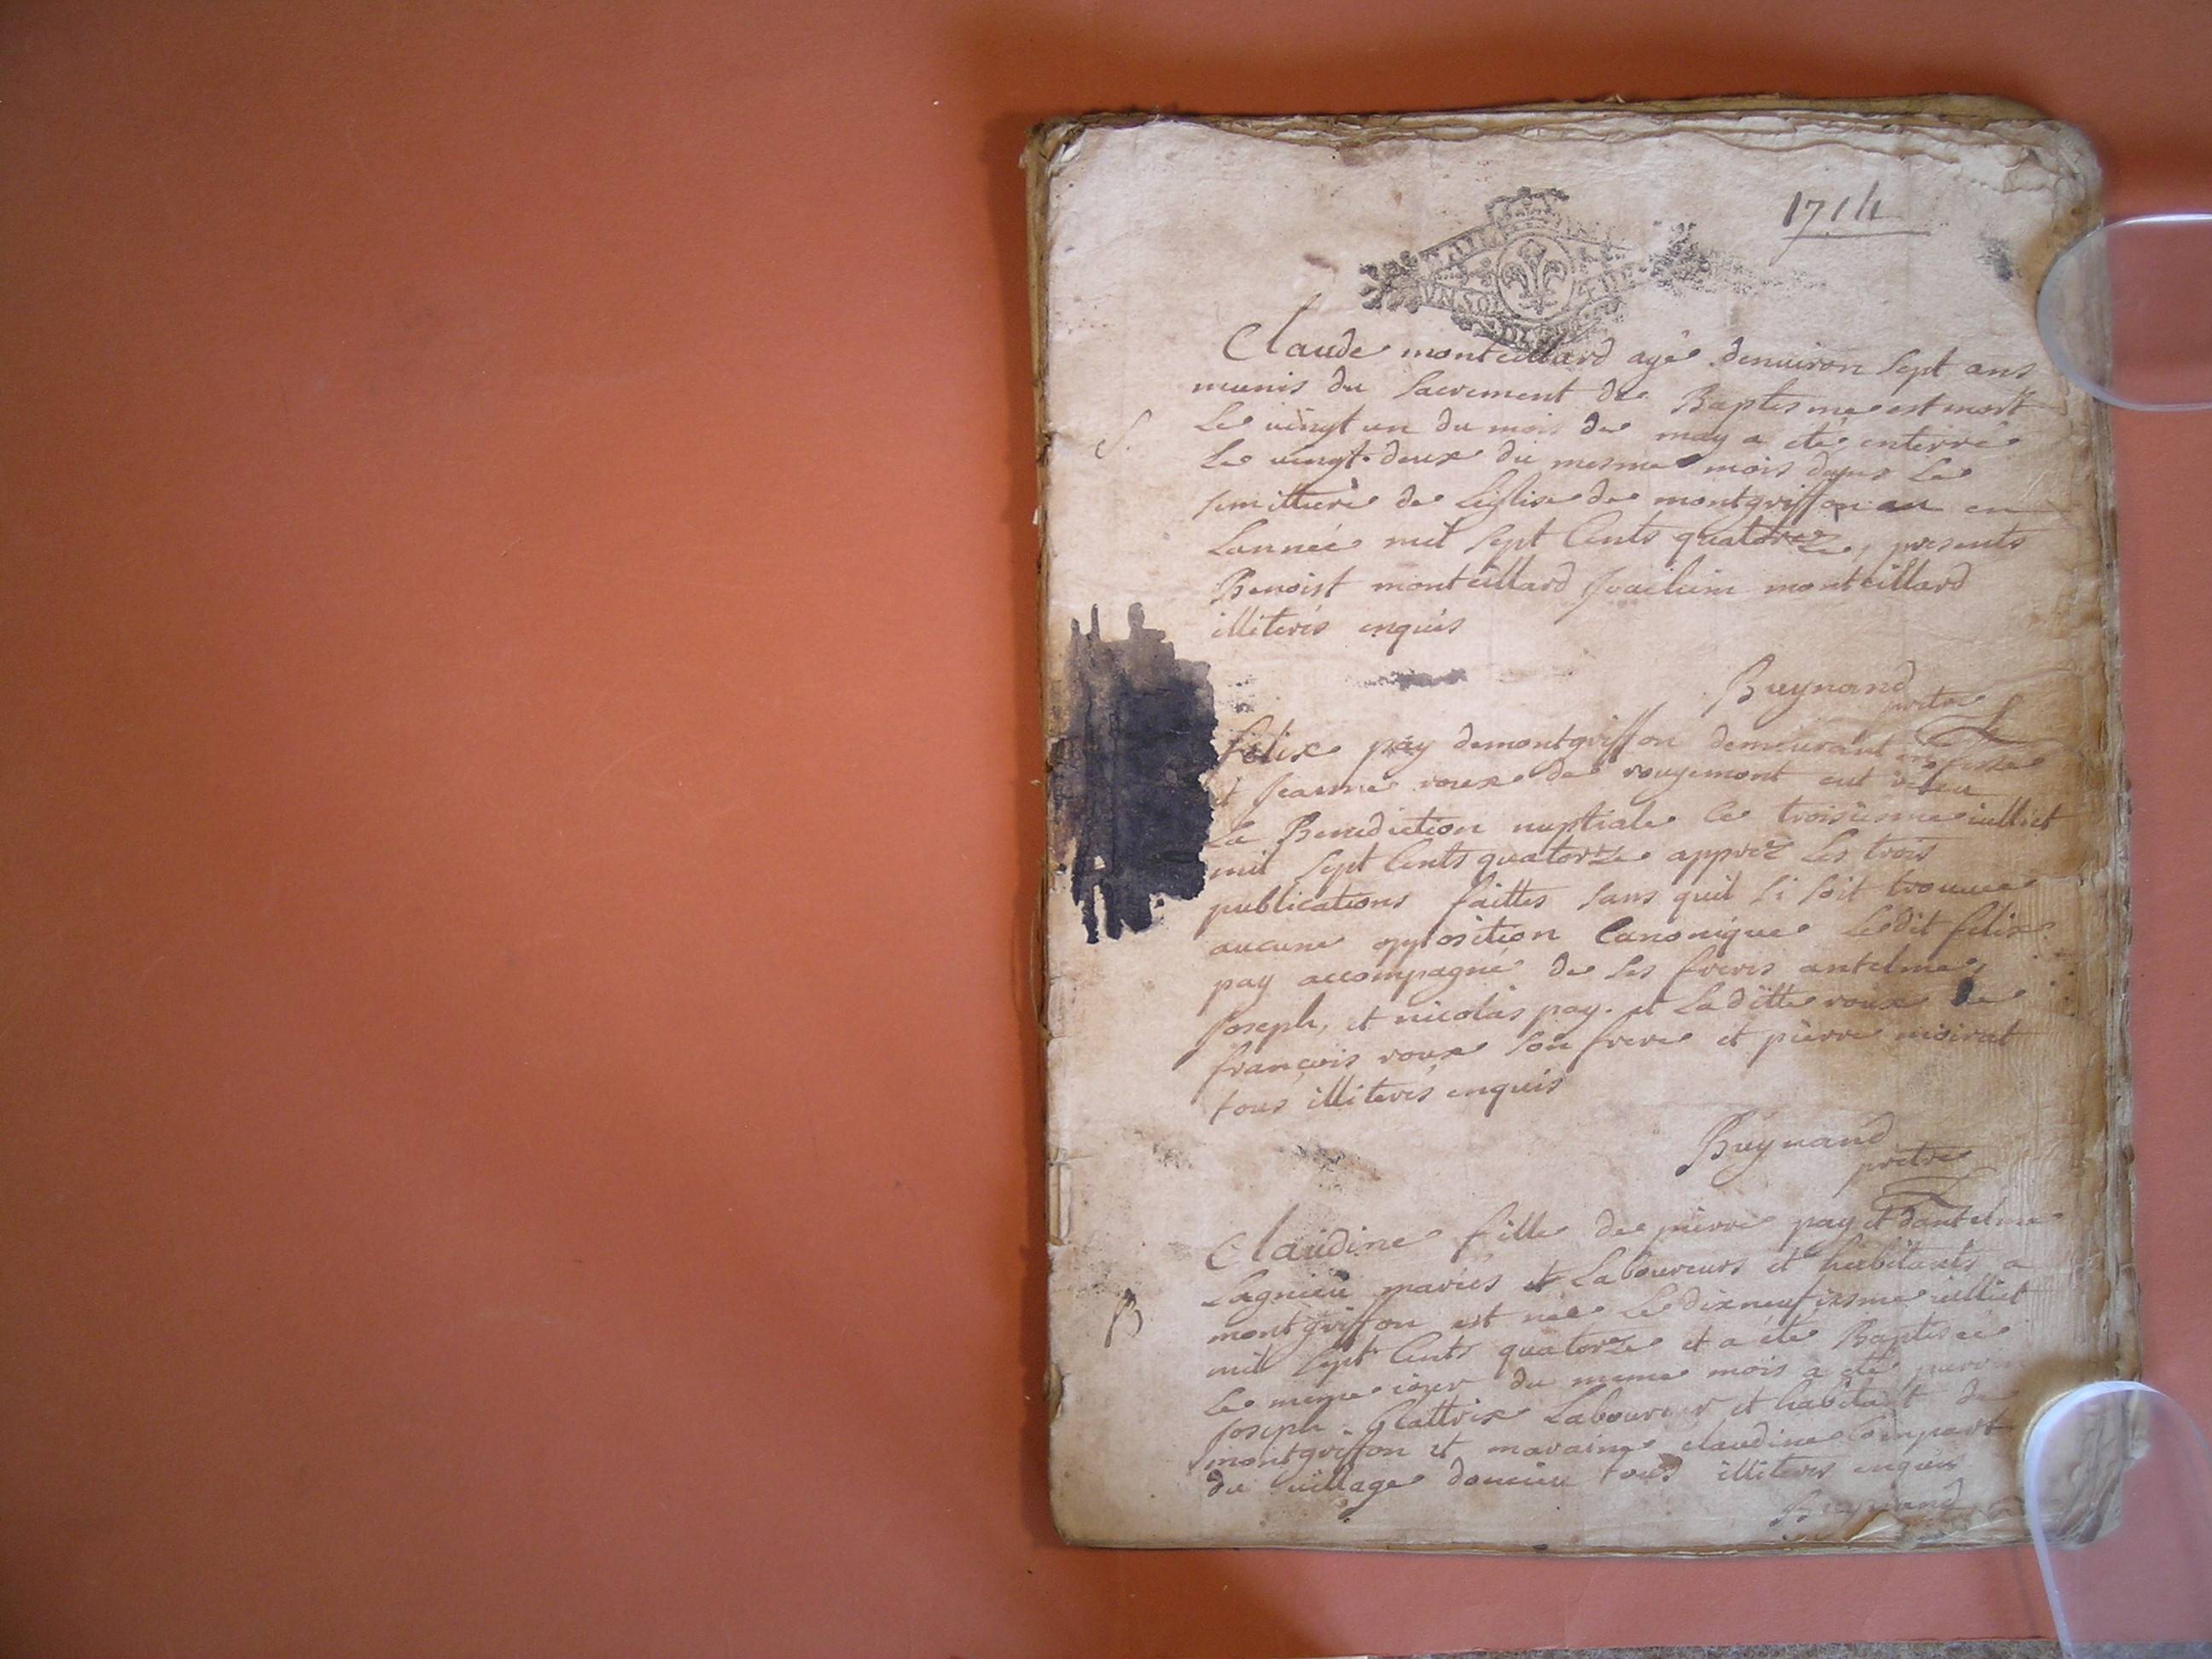 1714
UN SOL
Claude monteillard agé denuiron sept ans
munis du sacrement de Baptesme est mort
S. Le uingt un du mois de may a eté enterré
Le uingt deux du mesme mois dans Le
simittiere de Leglise de montgriffon en
Lannée mil sept Cents quatorze, presents
Benoist monteillard Joachim monteillard
illiterés enquis
Reynand
pretre
felix pay demontgriffon demeurant en
et Jeanne roux de rougemont ont
La Benediction nuptiale Le troisiesme iulliet
mil sept Cents quatorze apprez Les trois
publications faittes sans quil si soit trouuee
aucune opposition Canonique Ledit felix
pay accompagné de ses freres antelme,
Joseph, et nicolas pay. et La ditte roux de
françois roux son frere et pierre
tous illiterés enquis
Reynand
pretre
Claudine fille de pierre pay et dantelme
Lagnieu mariés et Laboureurs et habitants a
montgriffon est neé Le dixneufiesme iulliet
B mil sept Cents quatorze et a eté Baptiseé
Le meme iour du meme mois a eté
Joseph Glattrix Laboureur et habitant de
montgriffon et maraine claudine Compart
du uillage tous illiterés enquis
Reynand